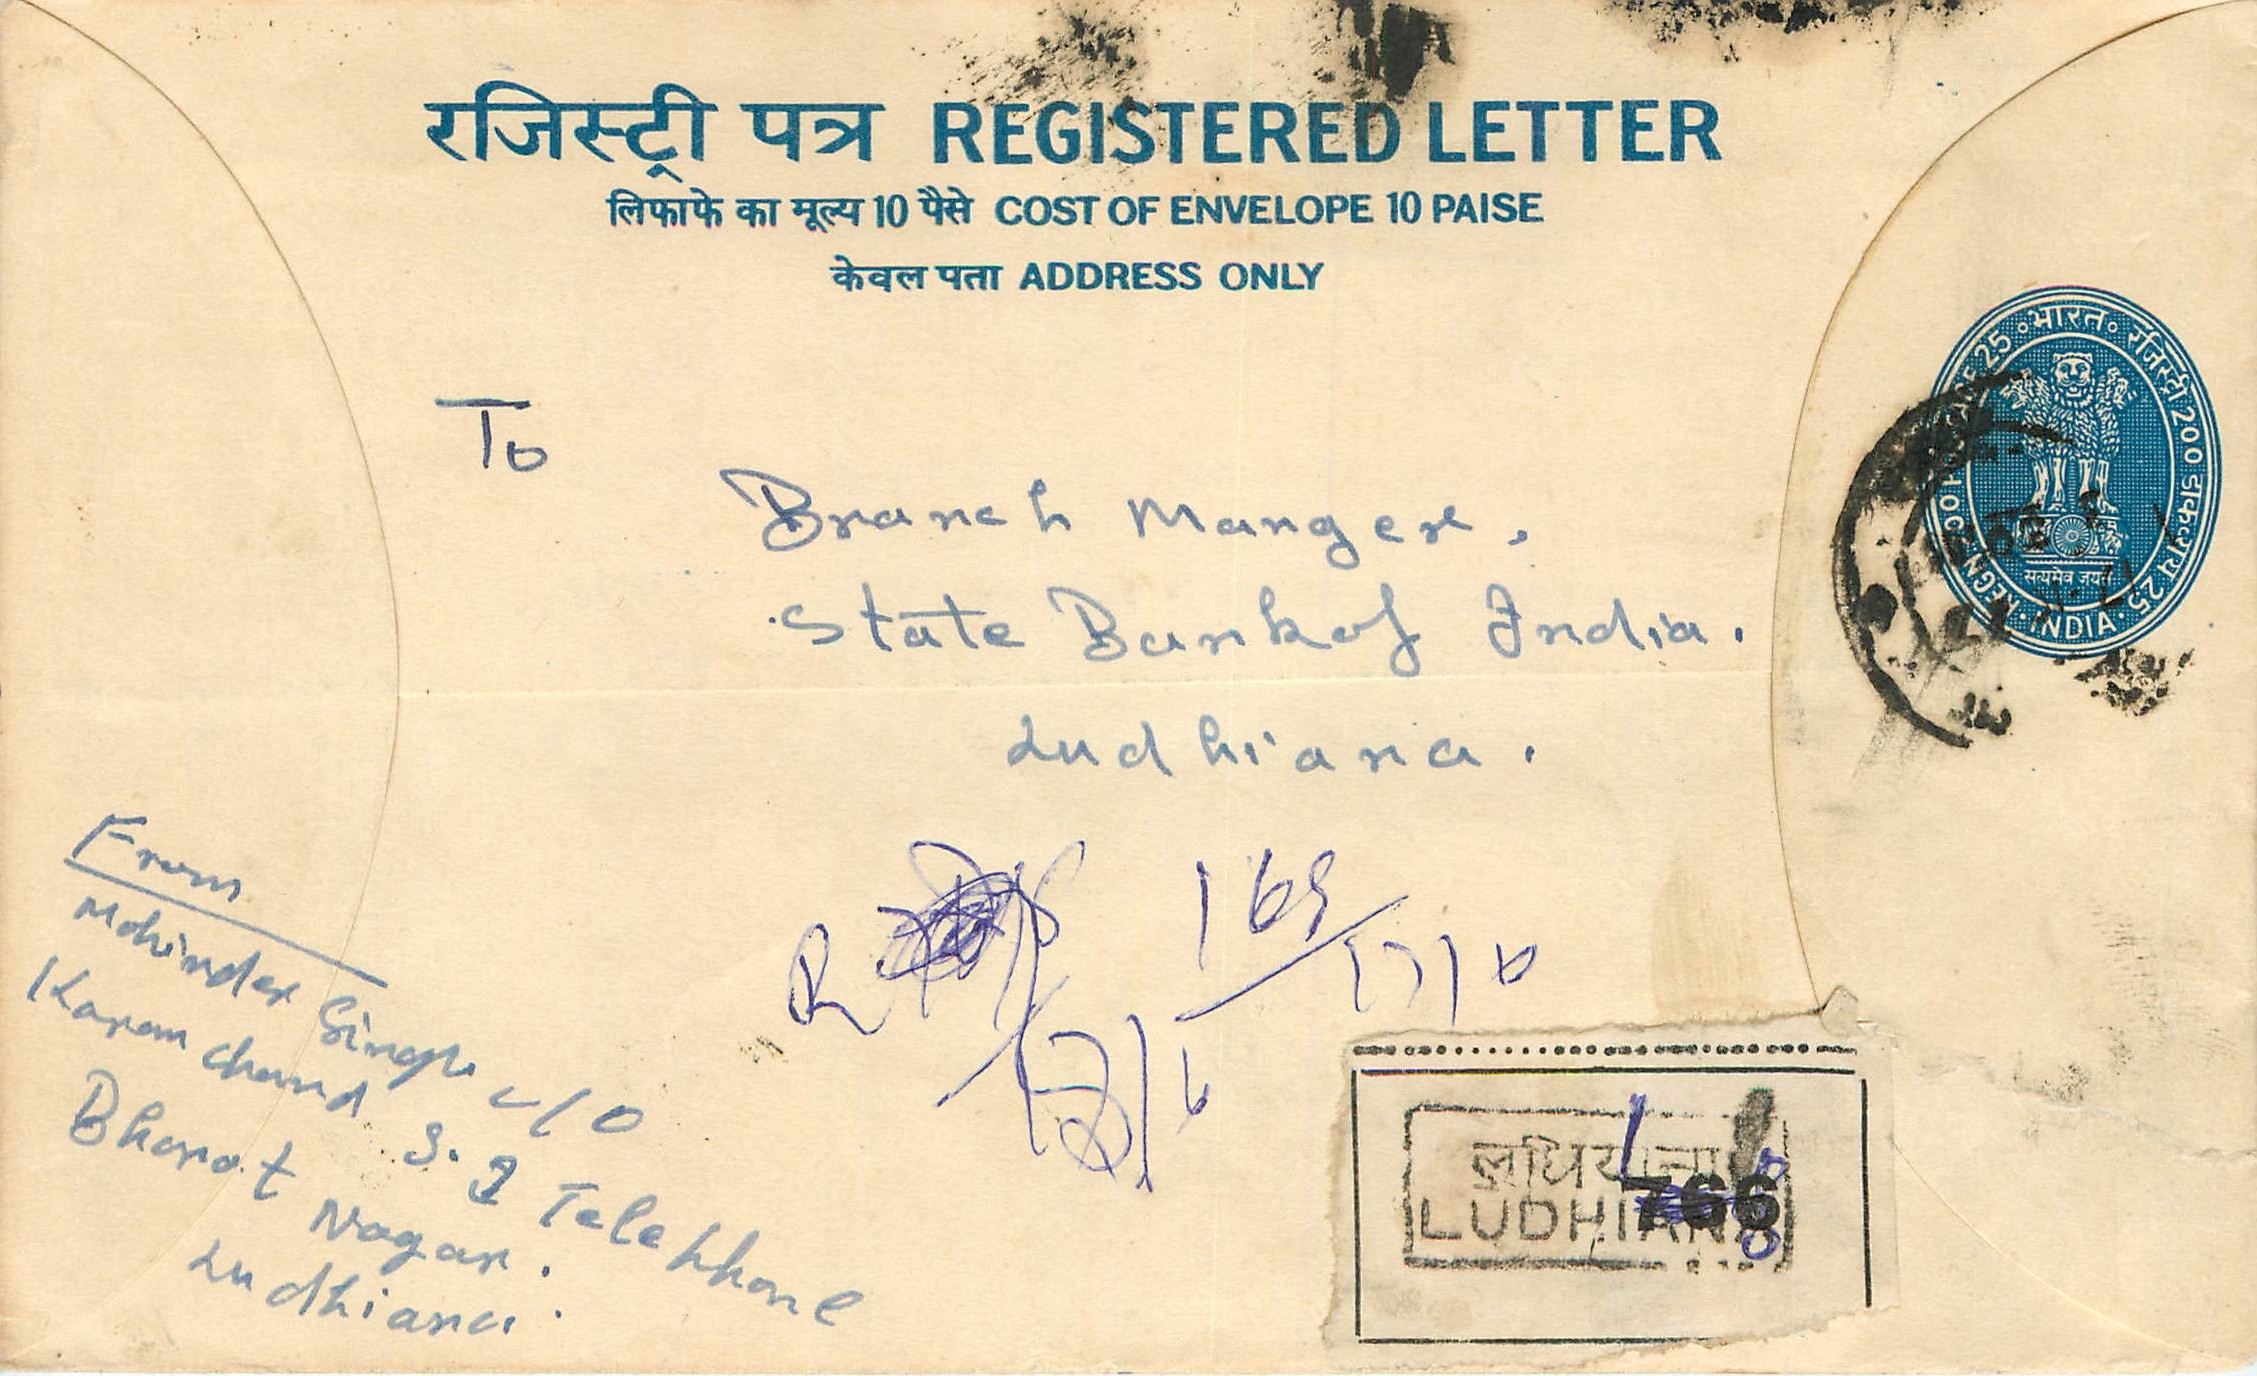 रजिस्ट्री पत्र REGISTERED LETTER
लिफाफे का मूल्य 10 पैसे COST OF ENVELOPE 10 PAISE
केवल पता ADDRESS ONLY
भारत रजिस्ट्री 200 डाकव्यय 25
INDIA REGN 200 25
सत्यमेव जयते
To
Branch Manger.
State Bank of India.
Ludhiana.
From
Mohinder Singh c/o
Karam Chand S. I Telephone
Bharat Nagar.
Ludhiana.
R
लुधियाना
LUDHIANA
766